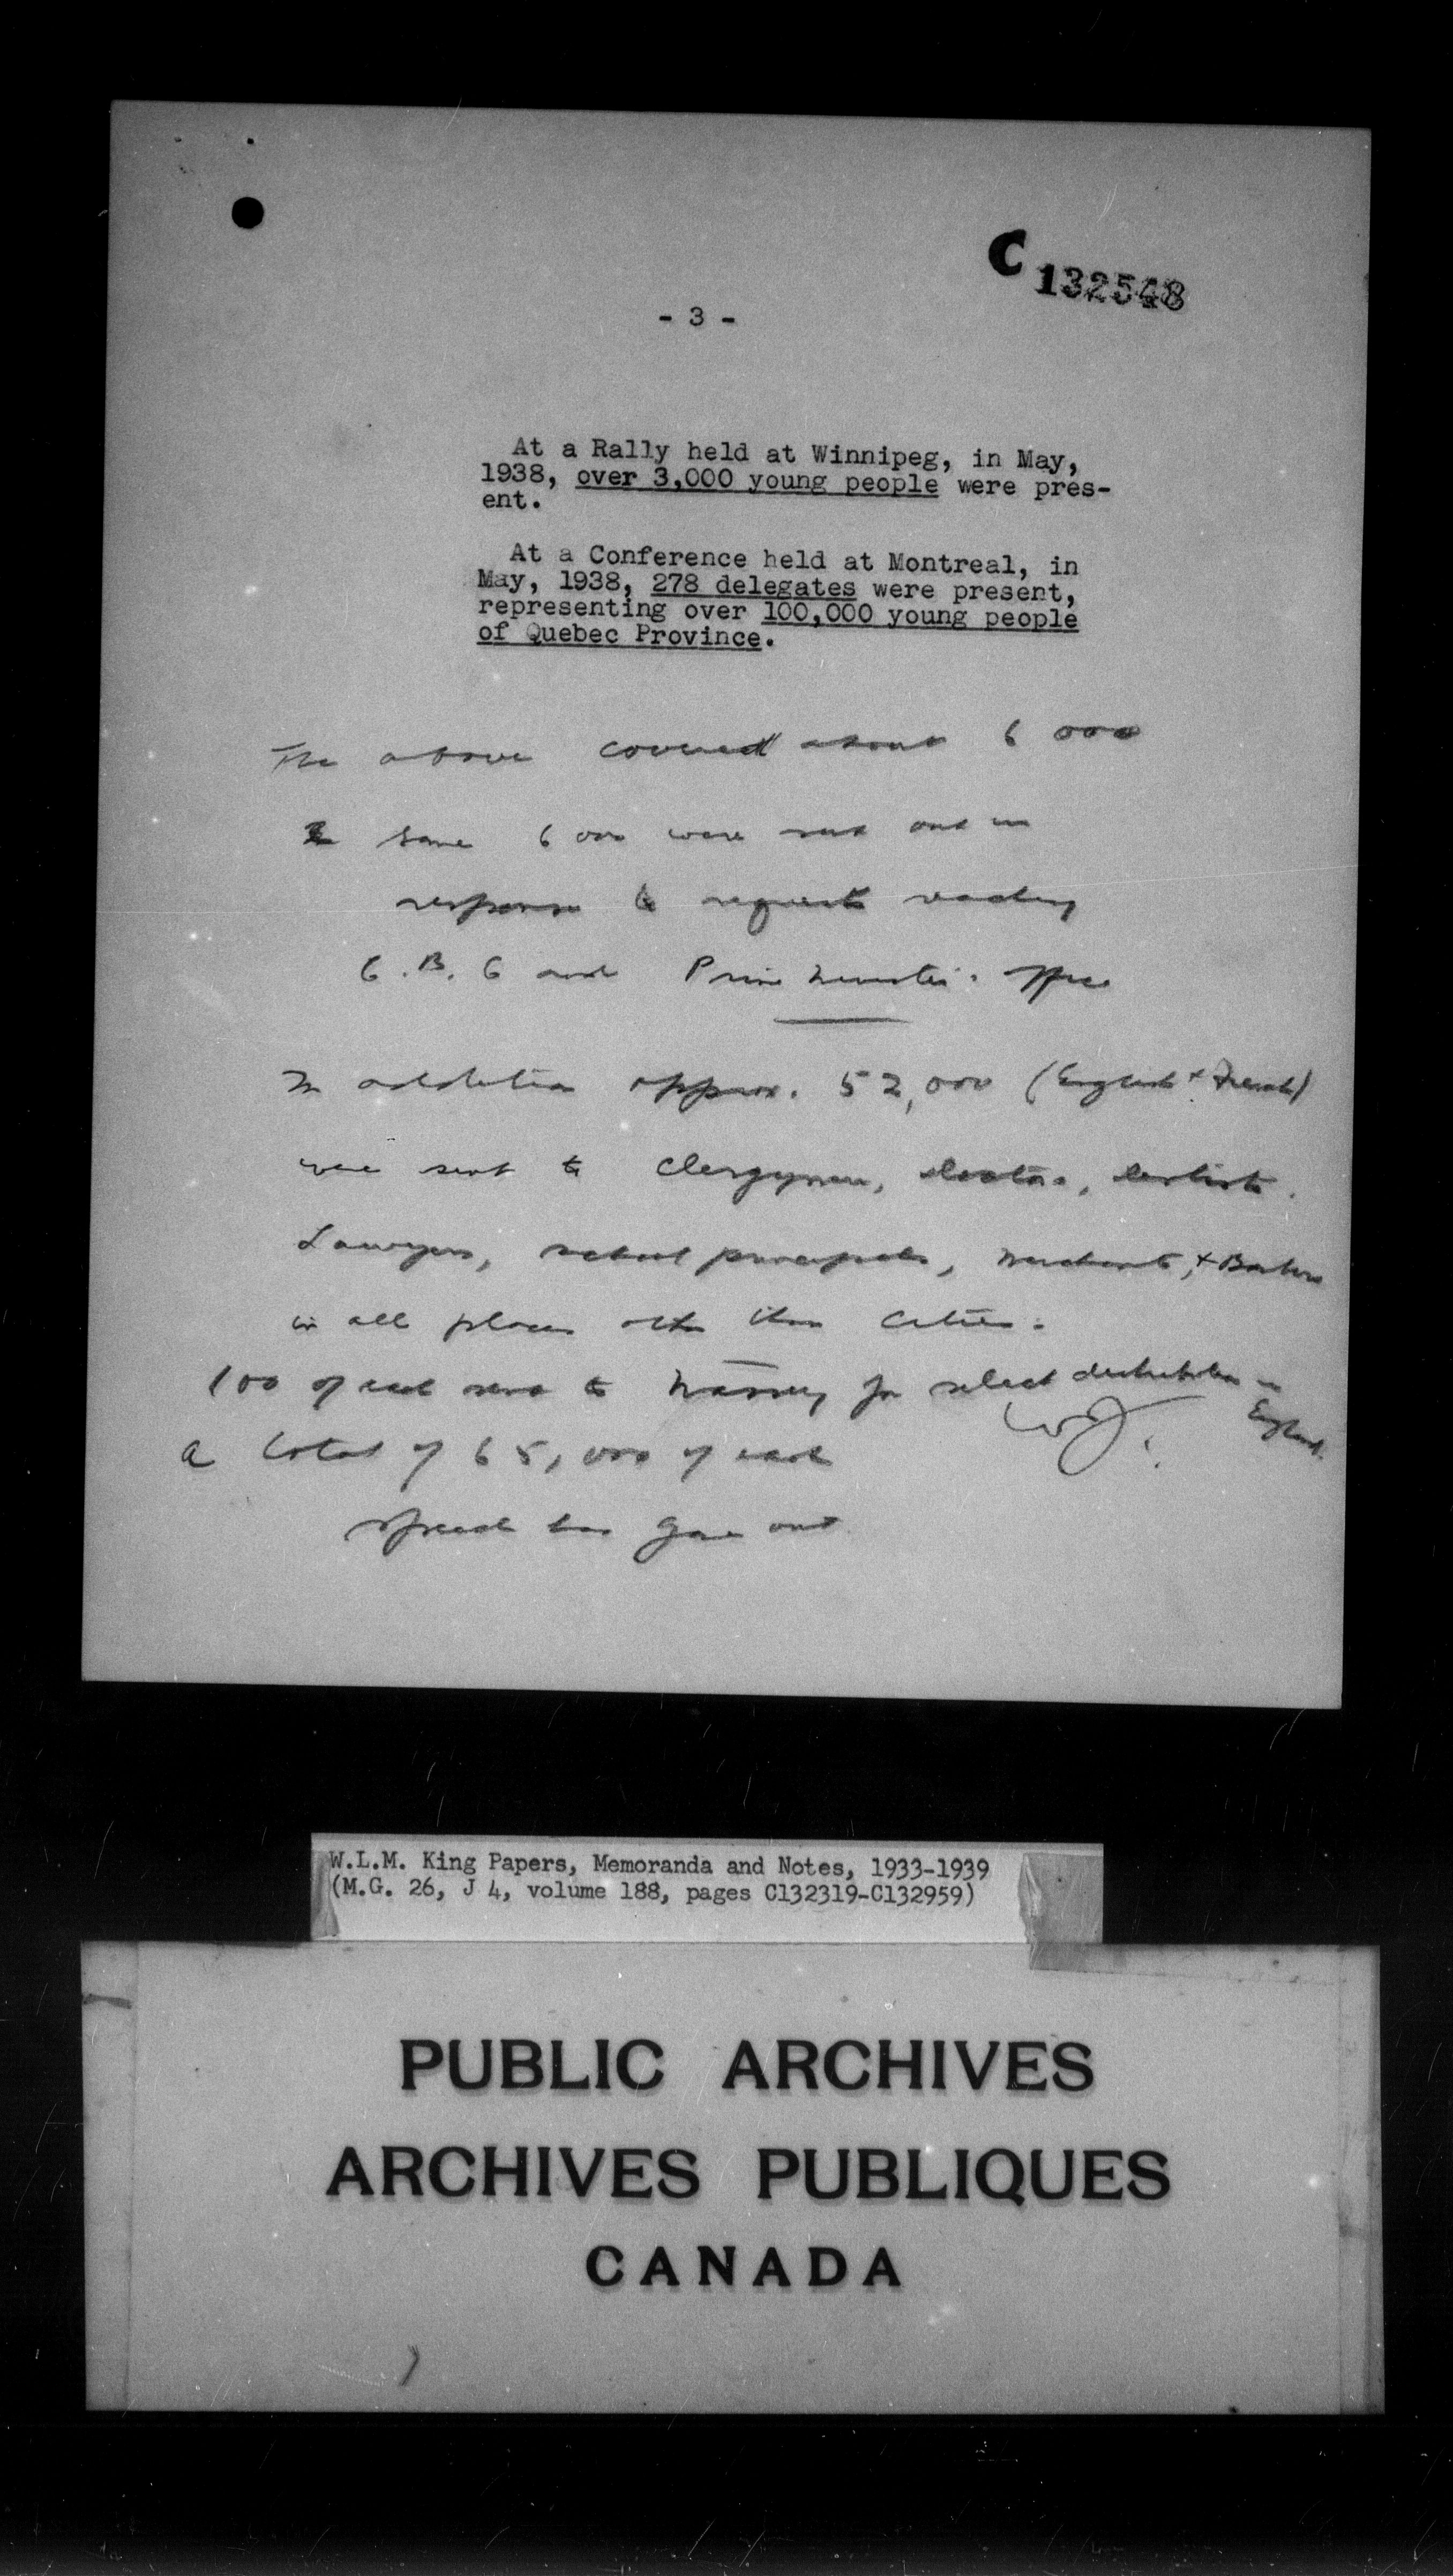 C 132548
- 3 -
At a Rally held at Winnipeg, in May,
1938, over 3,000 young people were pres-
ent.
At a Conference held at Montreal, in
May, 1938, 278 delegates were present,
representing over 100,000 young people
of Quebec Province.
The above covered about 6 000
some 6 000 were sent out in
response to requests reaching
C.B.C and Prime Minister's Office
In addition approx. 52,000 (English & French)
were sent to Clergymen, doctors, dentists,
Lawyers, school principals, merchants, & Bankers
in all places other than Cities.
100 of each sent to Massey for select distribution in
England.
a total of 65,000 of each
speech has gone out
W.L.M. King Papers, Memoranda and Notes, 1933-1939
(M.G. 26, J 4, volume 188, pages C132319-C132959)
PUBLIC ARCHIVES
ARCHIVES PUBLIQUES
CANADA